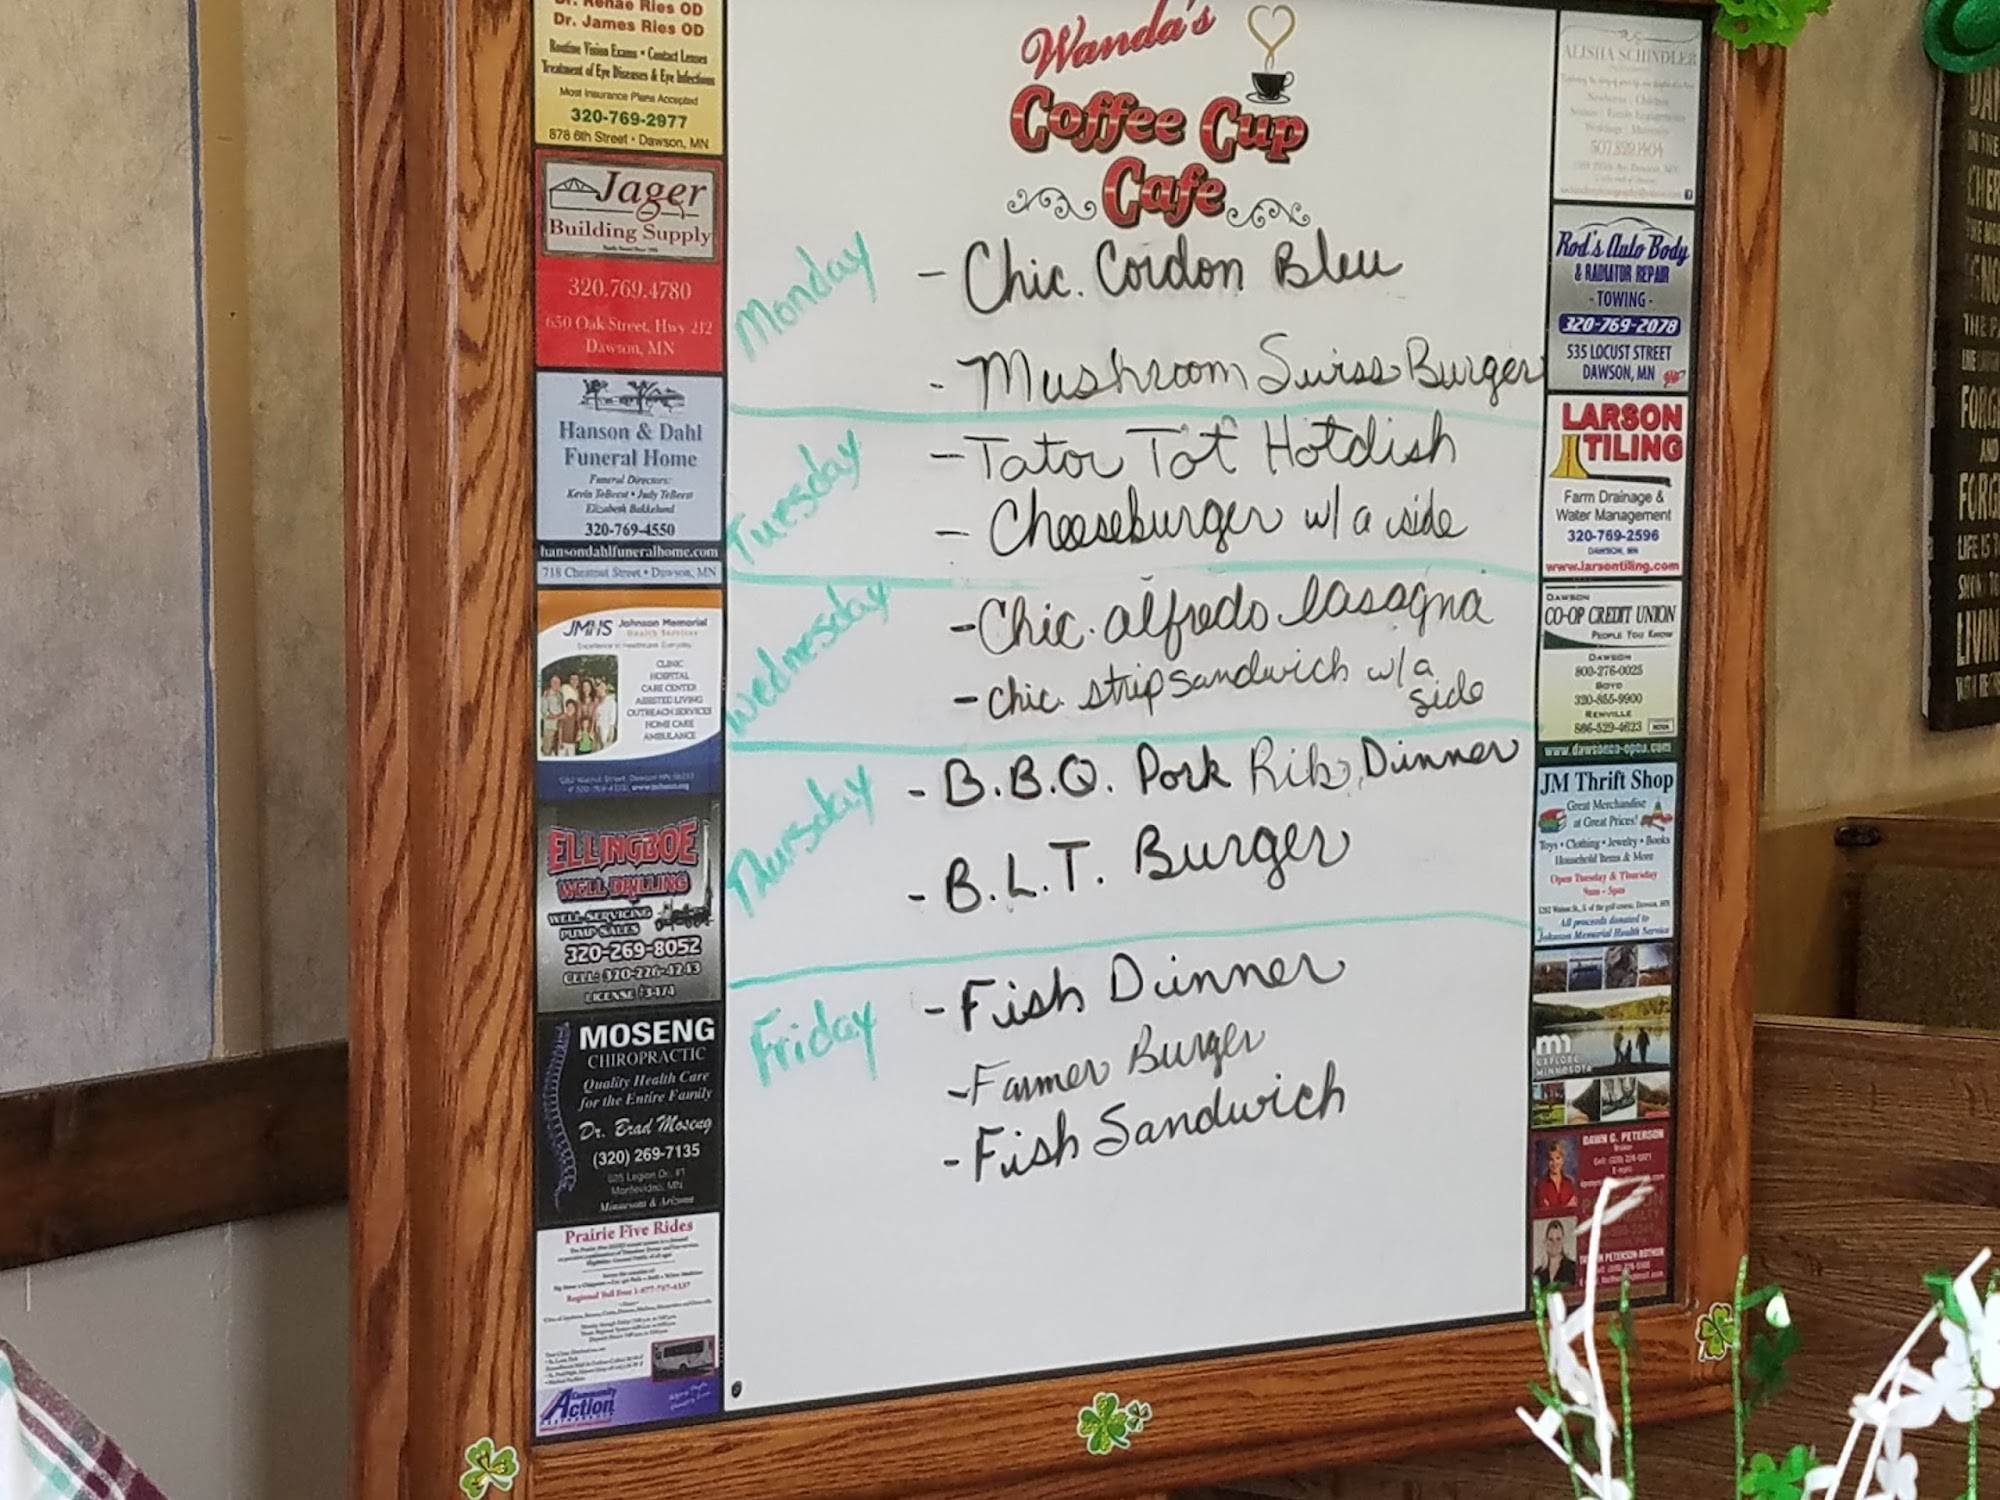 Dr. Renae Ries OD
Dr. James Ries OD
Routine Vision Exams • Contact Lenses
Treatment of Eye Diseases & Eye Infections
Most Insurance Plans Accepted
320-769-2977
878 6th Street • Dawson, MN
Jager
Building Supply
320.769.4780
650 Oak Street, Hwy 212
Dawson, MN
Hanson & Dahl
Funeral Home
Funeral Directors:
Kevin TeBeest • Judy TeBeest
Elizabeth Bakkelund
320-769-4550
hansondahlfuneralhome.com
718 Chestnut Street • Dawson, MN
JMHS Johnson Memorial
Health Services
Excellence in Healthcare Everyday
CLINIC
HOSPITAL
CARE CENTER
ASSISTED LIVING
OUTREACH SERVICES
HOME CARE
AMBULANCE
ELLINGBOE
WELL DRILLING
WELL SERVICING
PUMP SALES
320-269-8052
CELL: 320-226-4243
LICENSE #3474
MOSENG
CHIROPRACTIC
Quality Health Care
for the Entire Family
Dr. Brad Moseng
(320) 269-7135
Montevideo, MN
Minnesota & Arizona
Prairie Five Rides
Community
Action
Wanda's
Coffee Cup
Cafe
Monday
- Chic. Cordon Bleu
- Mushroom Swiss Burger
Tuesday
- Tator Tot Hotdish
- Cheeseburger w/ a side
Wednesday
- Chic. alfredo lasagna
- Chic. strip sandwich w/ a
side
Thursday
- B.B.Q. Pork Rib Dinner
- B.L.T. Burger
Friday
- Fish Dinner
- Farmer Burger
- Fish Sandwich
ALISHA SCHINDLER
507.829.1404
Rod's Auto Body
& RADIATOR REPAIR
- TOWING -
320-769-2078
535 LOCUST STREET
DAWSON, MN
LARSON
TILING
Farm Drainage &
Water Management
320-769-2596
DAWSON, MN
www.larsontiling.com
DAWSON
CO-OP CREDIT UNION
PEOPLE YOU KNOW
DAWSON
800-276-0025
BOYD
320-855-9900
RENVILLE
866-329-4623
www.dawsonco-opcu.com
JM Thrift Shop
Great Merchandise
at Great Prices!
Toys • Clothing • Jewelry • Books
Household Items & More
Open Tuesday & Thursday
9am - 5pm
All proceeds donated to
Johnson Memorial Health Service
mn
EXPLORE
MINNESOTA
DAWN G. PETERSON
Broker
THE
FORG
AND
FORG
LIFE IS
LIVIN